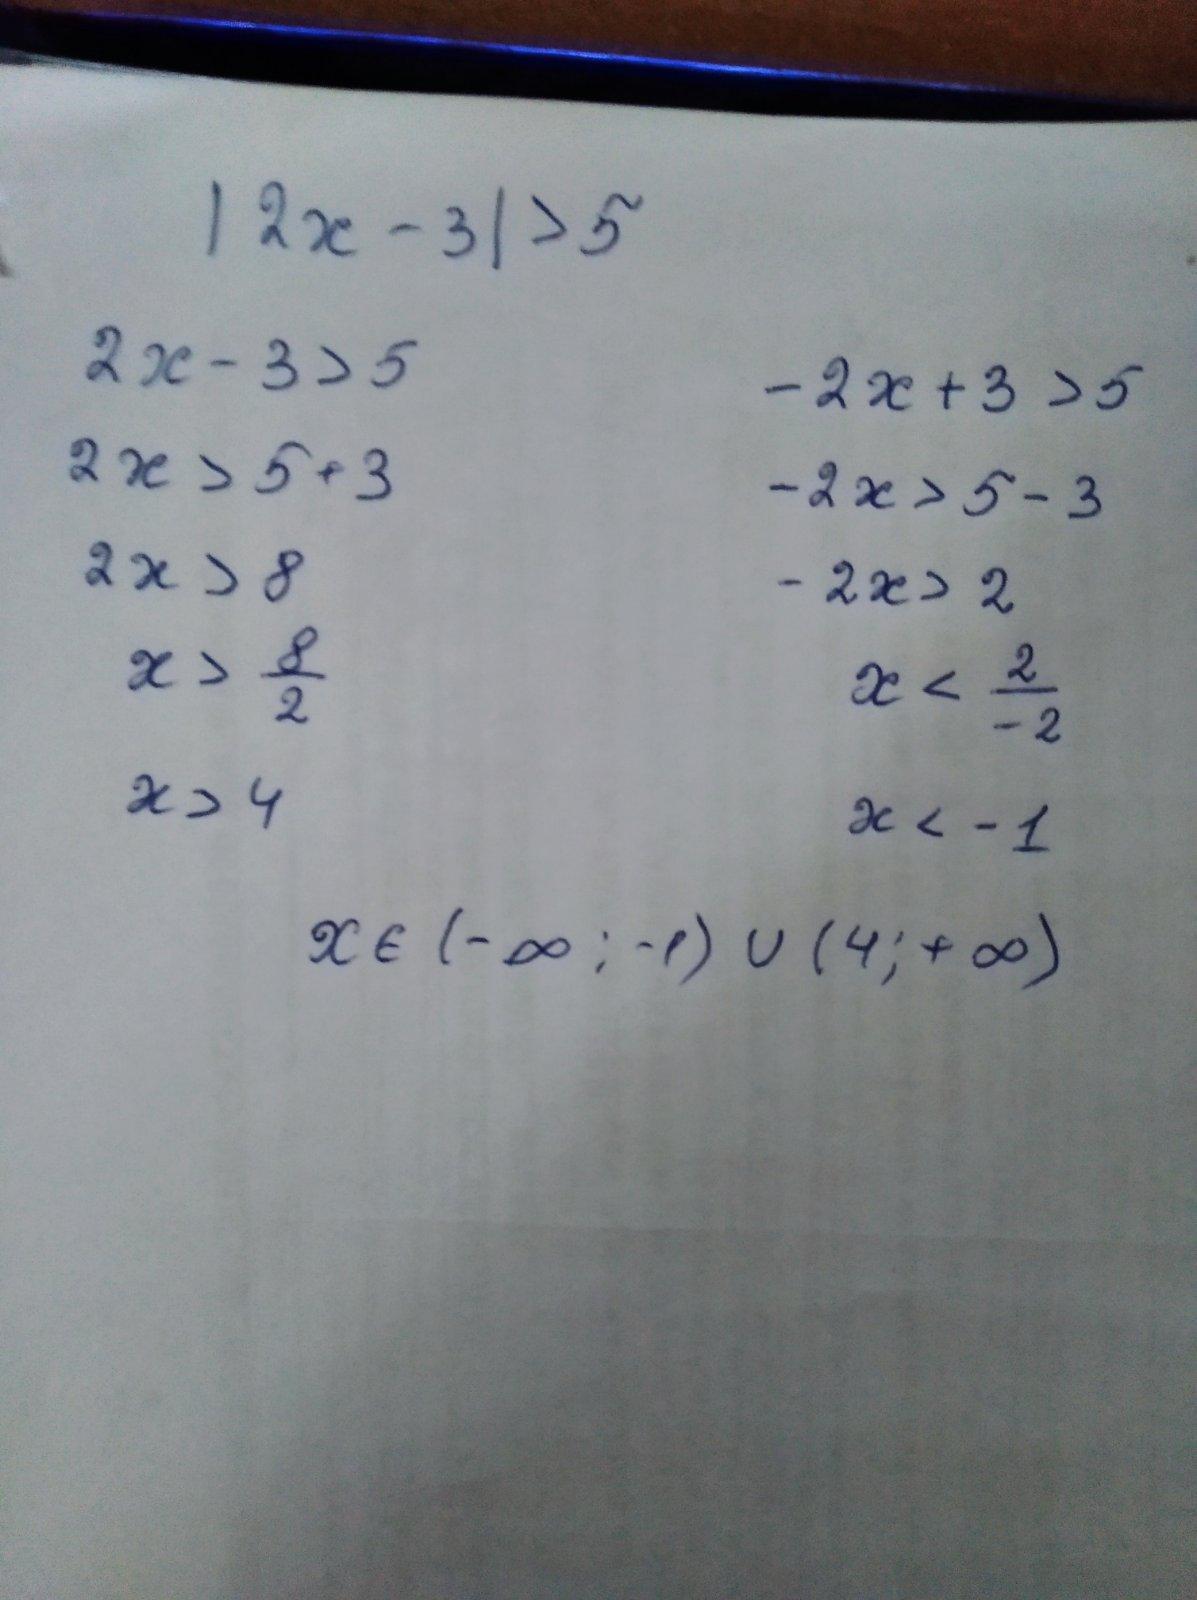 |2x - 3| > 5
2x - 3 > 5
2x > 5 + 3
2x > 8
x > 8/2
x > 4
-2x + 3 > 5
-2x > 5 - 3
-2x > 2
x < 2/-2
x < -1
x ∈ (-∞; -1) ∪ (4; +∞)